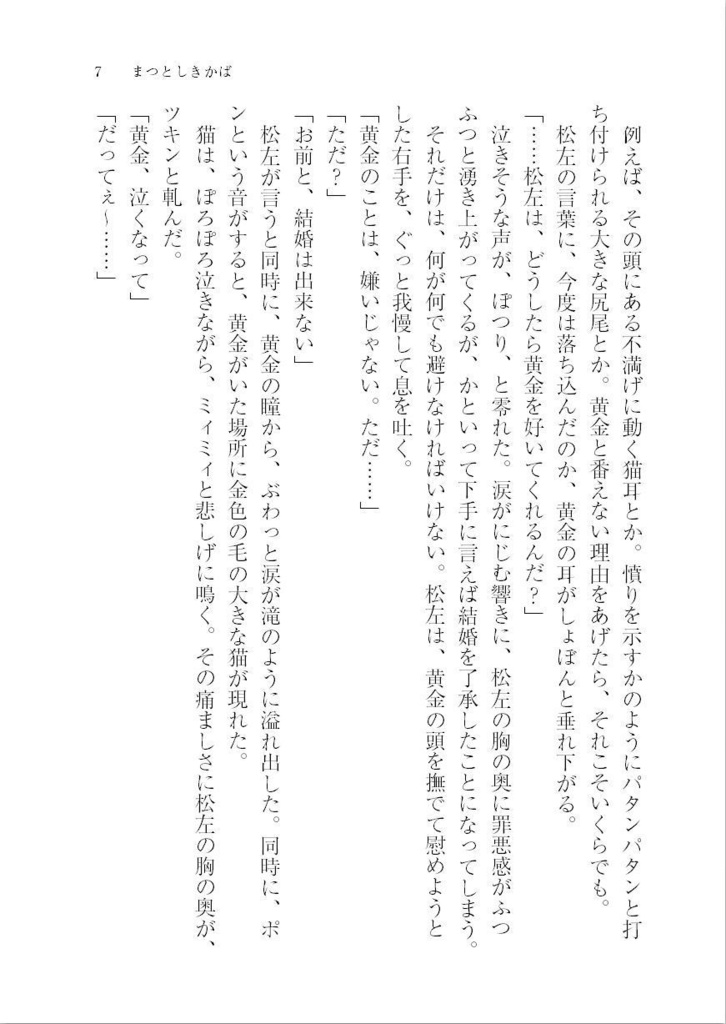 7 まつとしきかば
例えば、その頭にある不満げに動く猫耳とか。憤りを示すかのようにパタンパタンと打
ち付けられる大きな尻尾とか。黄金と番えない理由をあげたら、それこそいくらでも。
松左の言葉に、今度は落ち込んだのか、黄金の耳がしょぼんと垂れ下がる。
「……松左は、どうしたら黄金を好いてくれるんだ?」
泣きそうな声が、ぽつり、と零れた。涙がにじむ響きに、松左の胸の奥に罪悪感がふつ
ふつと湧き上がってくるが、かといって下手に言えば結婚を了承したことになってしまう。
それだけは、何が何でも避けなければいけない。松左は、黄金の頭を撫でて慰めようと
した右手を、ぐっと我慢して息を吐く。
「黄金のことは、嫌いじゃない。ただ……」
「ただ?」
「お前と、結婚は出来ない」
松左が言うと同時に、黄金の瞳から、ぶわっと涙が滝のように溢れ出した。同時に、ポ
ンという音がすると、黄金がいた場所に金色の毛の大きな猫が現れた。
猫は、ぽろぽろ泣きながら、ミィミィと悲しげに鳴く。その痛ましさに松左の胸の奥が、
ツキンと軋んだ。
「黄金、泣くなって」
「だってぇ~……」